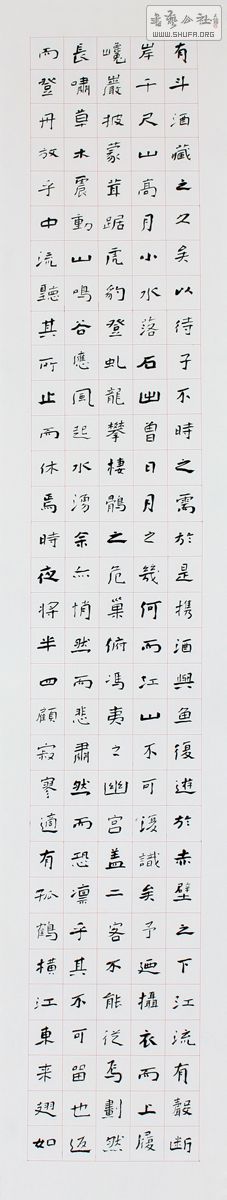 有斗酒藏之久矣以待子不時之需於是携酒與魚復遊於赤壁之下江流有聲斷
岸千尺山高月小水落石出曾日月之幾何而江山不可復識矣予迺攝衣而上履
巉巖披蒙茸踞虎豹登虬龍攀棲鶻之危巢俯馮夷之幽宮蓋二客不能從焉劃然
長嘯草木震動山鳴谷應風起水湧余亦悄然而悲肅然而恐凛乎其不可留也返
而登舟放乎中流聽其所止而休焉時夜將半四顧寂寥適有孤鶴橫江東来翅如
书艺公社
WWW.SHUFA.ORG